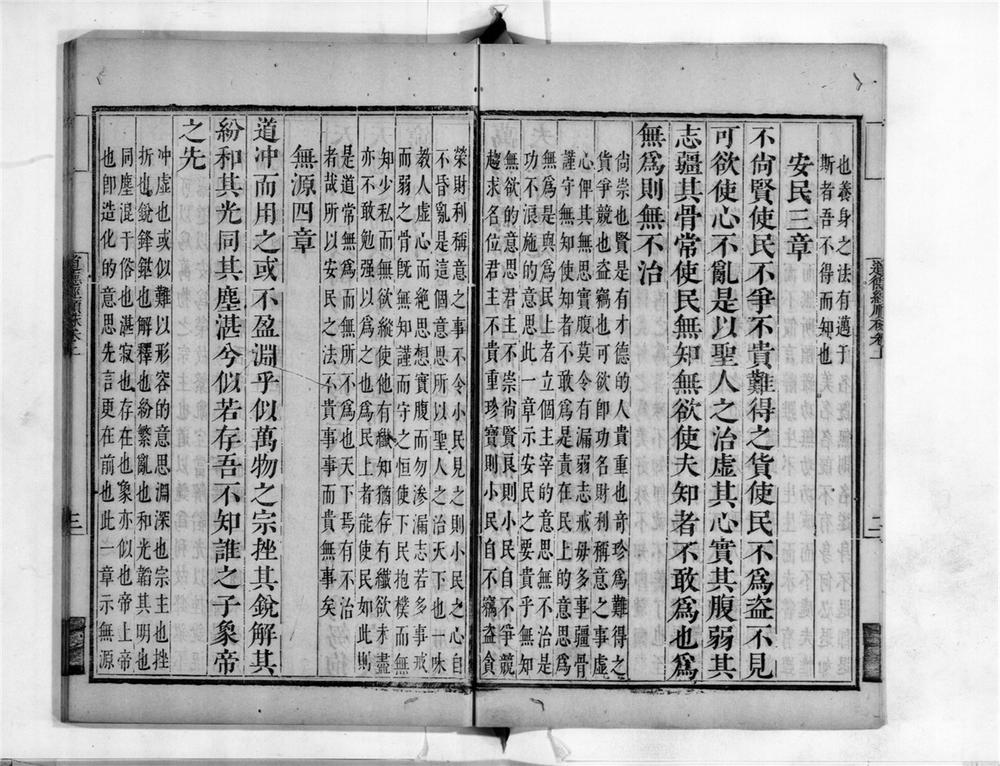 也養身之法有邁于
斯者吾不得而知也
安民三章
不尙賢使民不爭不貴難得之貨使民不爲盗不見
可欲使心不亂是以聖人之治虚其心實其腹弱其
志疆其骨常使民無知無欲使夫知者不敢爲也爲
無爲則無不治
尙崇也賢是有才德的人貴重也竒珍爲難得之
貨爭競也盗竊也可欲卽功名財利稱意之事虚
心俾其無思實腹莫令有漏弱志戒毋多事疆骨
謹守無無使知者不敢爲是責在民上的意思爲
無爲是與民上者立個主宰的意思無不治是
功不浪施的意思此一章示安民之要貴乎無知
無欲的意思君主不崇尙賢良則小民自不爭競
趨求名位君主不貴重珍寶則小民自不竊盗貪
榮財利稱意之事不令小民見之則小民之心自
不昏亂是這個意思所以聖人之治天下也一味
教人虚心而絶思想實腹而勿渗漏志若多事戒
而弱之骨旣無知謹而守之恒使下民抱樸而無
知少私而無欲縱使他有織知猶存有織欲未盡
亦不敢勉强以爲之也爲民上者能使民如此則
是道常無爲而無所不爲也天下焉有不治
者哉所以安民之法不貴事事而貴無事矣
無源四章
道冲而用之或不盈淵乎似萬物之宗挫其銳解其
紛和其光同其塵湛兮似若存吾不知誰之子象帝
之先
冲虚也或似難以形容的意思淵深也宗主也挫
折也銳鋒銋也解釋也紛繁亂也和光韜其明也
同塵混于俗也湛寂也存在也象亦似也帝上帝
也卽造化的的意思先言更在前也此一章示無源